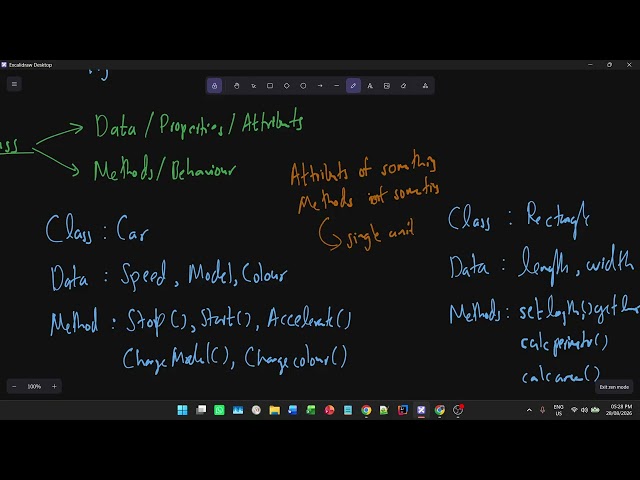 Excalidraw Desktop
ass
Data / Properties / Attributs
Methods / Behaviour
Attributs of something
Methods of
single unit
Class : Car
Data : Speed, Model, Colour
Method : Stop(), Start(), Accelerate()
ChangeModel(), Changecolour()
Class : Rectangle
Data : length, width
Methods :
calcperimeter()
calcarea()
100%
Exit zen mode
ENG
US
05:28 PM
28/08/2026